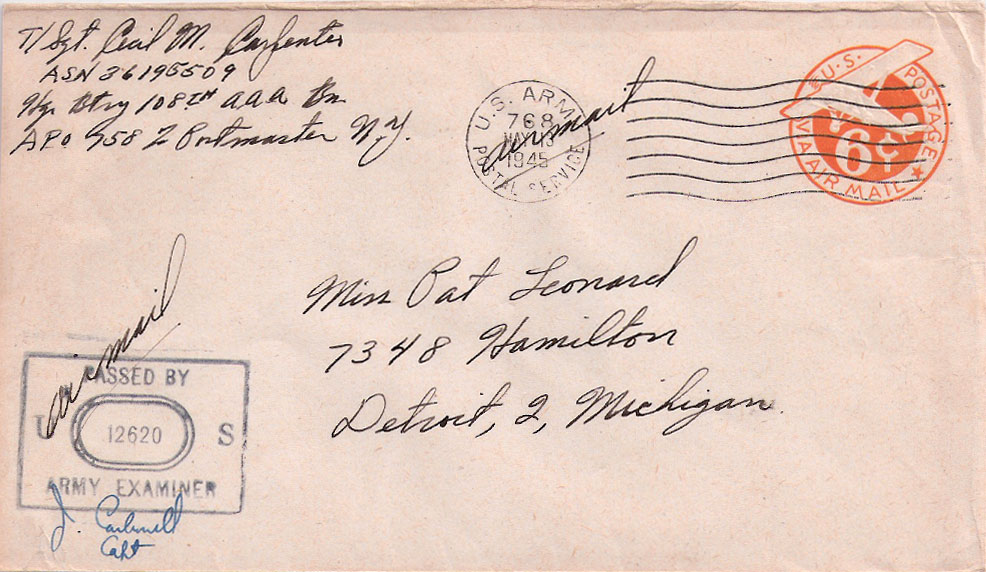 T/Sgt. Cecil M. Carpenter
ASN 36195509
Hq. Btry 108TH AAA Bn
APO 758 % Postmaster N.Y.
airmail
U.S. ARMY
768
MAY 13
1945
POSTAL SERVICE
U.S. POSTAGE
6¢
VIA AIR MAIL
Miss Pat Leonard
7348 Hamilton
Detroit, 2, Michigan
airmail
PASSED BY
U 12620 S
ARMY EXAMINER
Capt